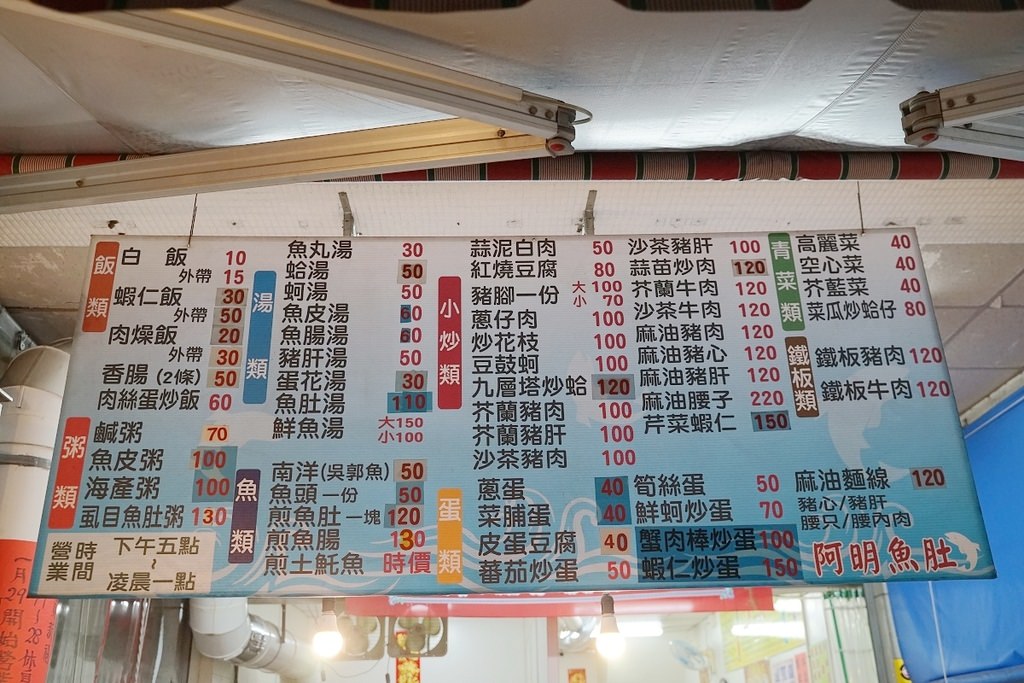 飯類
白飯 10
外帶 15
蝦仁飯 30
外帶 50
肉燥飯 20
外帶 30
香腸(2條) 50
肉絲蛋炒飯 60
粥類
鹹粥 70
魚皮粥 100
海產粥 100
虱目魚肚粥 130
營業時間
下午五點
~
凌晨一點
湯類
魚丸湯 30
蛤湯 50
蚵湯 50
魚皮湯 60
魚腸湯 60
豬肝湯 50
蛋花湯 30
魚肚湯 110
鮮魚湯 大150 小100
魚類
南洋(吳郭魚) 50
魚頭一份 50
煎魚肚一塊 120
煎魚腸 130
煎土魠魚 時價
小炒類
蒜泥白肉 50
紅燒豆腐 80
豬腳一份 大100 小70
蔥仔肉 100
炒花枝 100
豆鼓蚵 100
九層塔炒蛤 120
芥蘭豬肉 100
芥蘭豬肝 100
沙茶豬肉 100
沙茶豬肝 100
蒜苗炒肉 120
芥蘭牛肉 120
沙茶牛肉 120
麻油豬肉 120
麻油豬心 120
麻油豬肝 120
麻油腰子 220
芹菜蝦仁 150
蛋類
蔥蛋 40
菜脯蛋 40
皮蛋豆腐 40
蕃茄炒蛋 50
筍絲蛋 50
鮮蚵炒蛋 70
蟹肉棒炒蛋 100
蝦仁炒蛋 150
青菜類
高麗菜 40
空心菜 40
芥藍菜 40
菜瓜炒蛤仔 80
鐵板類
鐵板豬肉 120
鐵板牛肉 120
麻油麵線 120
豬心/豬肝
腰只/腰內肉
阿明魚肚